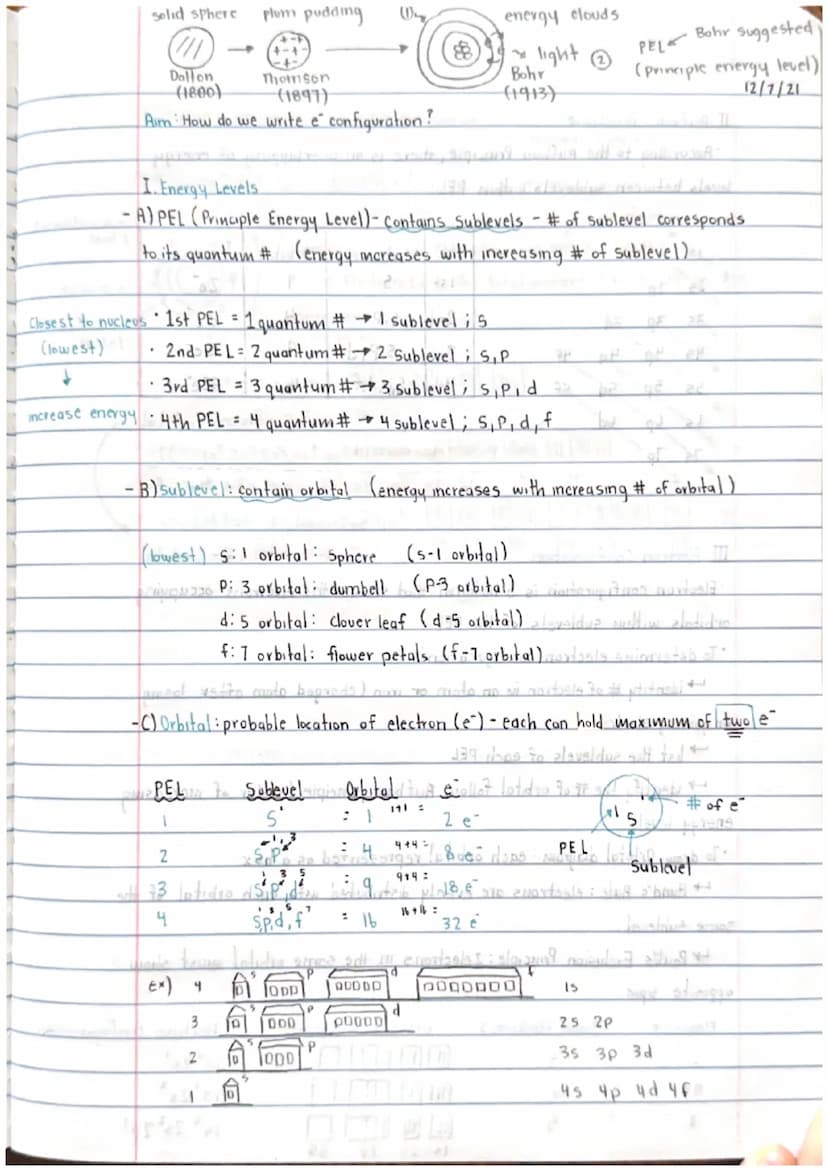 solid sphere plum pudding (1) energy clouds
Dalton Thomson light (2) Bohr
(1800) (1897) (1913)
PEL Bohr suggested
(principle energy level)
12/7/21
Aim: How do we write e⁻ configuration?
I. Energy Levels
- A) PEL (Principle Energy Level) - contains sublevels - # of sublevel corresponds
to its quantum # (energy increases with increasing # of sublevel)
Closest to nucleus · 1st PEL = 1 quantum # → 1 sublevel; s
(lowest) · 2nd PEL = 2 quantum # → 2 sublevel; s, p
↓ · 3rd PEL = 3 quantum # → 3 sublevel; s, p, d
increase energy · 4th PEL = 4 quantum # → 4 sublevel; s, p, d, f
- B) sublevel: contain orbital (energy increases with increasing # of orbital)
(lowest) s: 1 orbital: sphere (s-1 orbital)
p: 3 orbital: dumbell (p-3 orbital)
d: 5 orbital: clover leaf (d-5 orbital)
f: 7 orbital: flower petals (f-7 orbital)
- C) Orbital: probable location of electron (e⁻) - each can hold maximum of two e⁻
PEL Sublevel Orbital e⁻
1 s¹ : 1 1+1 = 2 e⁻
2 s¹, p³ : 4 4+4 = 8 e⁻
3 s¹, p³, d⁵ : 9 9+9 = 18 e⁻
4 s¹, p³, d⁵, f⁷ = 16 16+16 = 32 e⁻
1 s¹ # of e⁻
PEL
Sublevel
Ex) 4 s p d f 1s
3 s p d 2s 2p
2 s p 3s 3p 3d
1 s 4s 4p 4d 4f